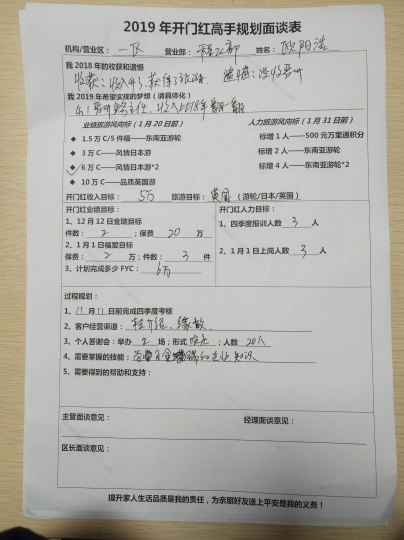 2019年开门红高手规划面谈表
机构/营业区：一区 营业部： 姓名：欧阳浩
我2018年的收获和遗憾
收获：收入 遗憾：没晋升
我2019年希望实现的梦想（请具体化）
业绩旅游风向标（1月20日前） 人力旅游风向标（1月31日前）
◆ 1.5万C/5件福——东南亚游轮 标增1人——500元万里通积分
◆ 3万C——风情日本游 标增2人——东南亚游轮
◆ 6万C——风情日本游*2 标增4人——东南亚游轮*2
◆ 10万C——品质英国游
开门红收入目标：5万 旅游目标：英国（游轮/日本/英国）
开门红业绩目标： 开门红人力目标：
1、12月12日金瑞目标 1、四季度报训人数 3 人
件数：2；保费 20 万
2、1月1日福爱目标 2、1月1日上岗人数 3 人
保费：2 万；件数：3 件
3、计划完成多少FYC：6万
过程规划：
1、11月11日前完成四季度考核
2、客户经营渠道：转介绍、缘故、
3、个人答谢会：举办 2 场；形式；人数 20人
4、需要掌握的技能：专业知识
5、需要得到的帮助和支持：
主管面谈意见： 经理面谈意见：
区长面谈意见：
提升家人生活品质是我的责任，为亲朋好友送上平安是我的义务！